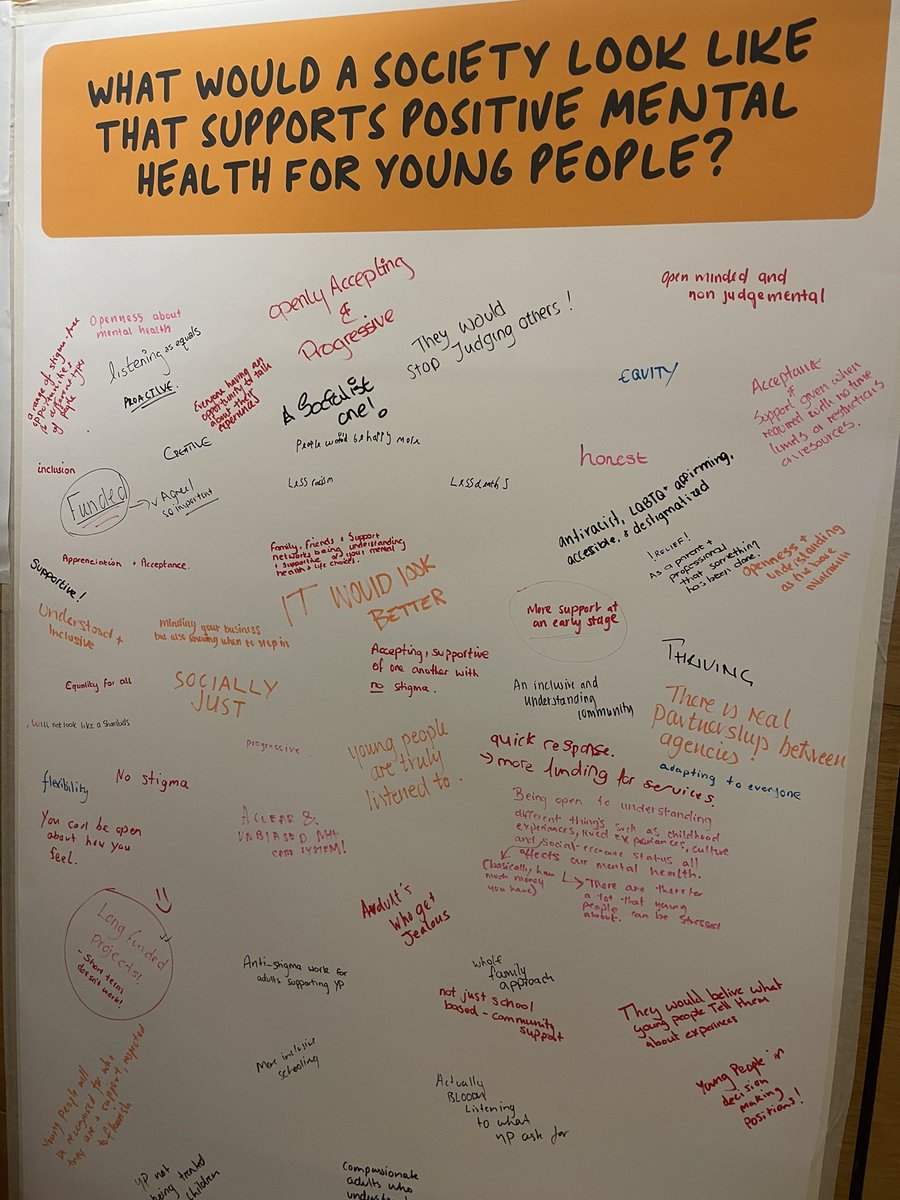 WHAT WOULD A SOCIETY LOOK LIKE
THAT SUPPORTS POSITIVE MENTAL
HEALTH FOR YOUNG PEOPLE?
openly Accepting
&
Progressive
Open minded and
non judgemental
a range of stigma-free
opportunities
to
types
of people
Openness about
mental health
listening as equals
PROACTIVE.
Everyone having an
opportunity to talk
about their
experiences
They would
stop judging others!
A Socialist
one!
People would be happy more
EQUITY
Acceptance
Support given when
required with no time
limits or restrictions
on resources.
CREATIVE
inclusion
Funded
Agree!
so important
Less racism
Less deaths
honest
antiracist, LGBTQ+ affirming,
accessible, & destigmatized
Appreciation + Acceptance.
Family, friends & support
networks being understanding
& supportive of your mental
health & life choices.
!RELIEF!
As a parent +
professional
that something
has been done.
openness +
understanding
as the bare
minimum
Supportive!
IT WOULD LOOK
BETTER
Understood +
Inclusive
minding your business
but also knowing when to step in
More support at
an early stage
Equality for all
SOCIALLY
JUST
Accepting, supportive
of one another with
no stigma.
An inclusive and
understanding
community
THRIVING
There is real
partnership between
agencies!
Will not look like a
progressive
young people
are truly
listened to.
quick response.
→ more funding for services.
adapting to everyone
flexibility
No stigma
You can be open
about how you
feel.
A CLEAR &
UNBIASED
CARE SYSTEM!
Being open to understanding
different things such as childhood
experiences, lived experiences, culture
and social-economic status all
affects our mental health.
(basically, how
much money
you have)
There are therefor
a lot that young
people can be stressed
about.
Long funded
projects!
- Short term
doesn't work!
Who get
Jealous
Anti-stigma work for
adults supporting YP
whole
family
approach
not just school
based - community
support
They would belive what
young people Tell them
about experinces
Young people will
be recognised for who
they are & support,
to flourish
More inclusive
schooling
Actually
BLOODY
Listening
to what
yp ask for
Young People in
decision
making
positions!
YP not
being treated
children
Compassionate
adults who